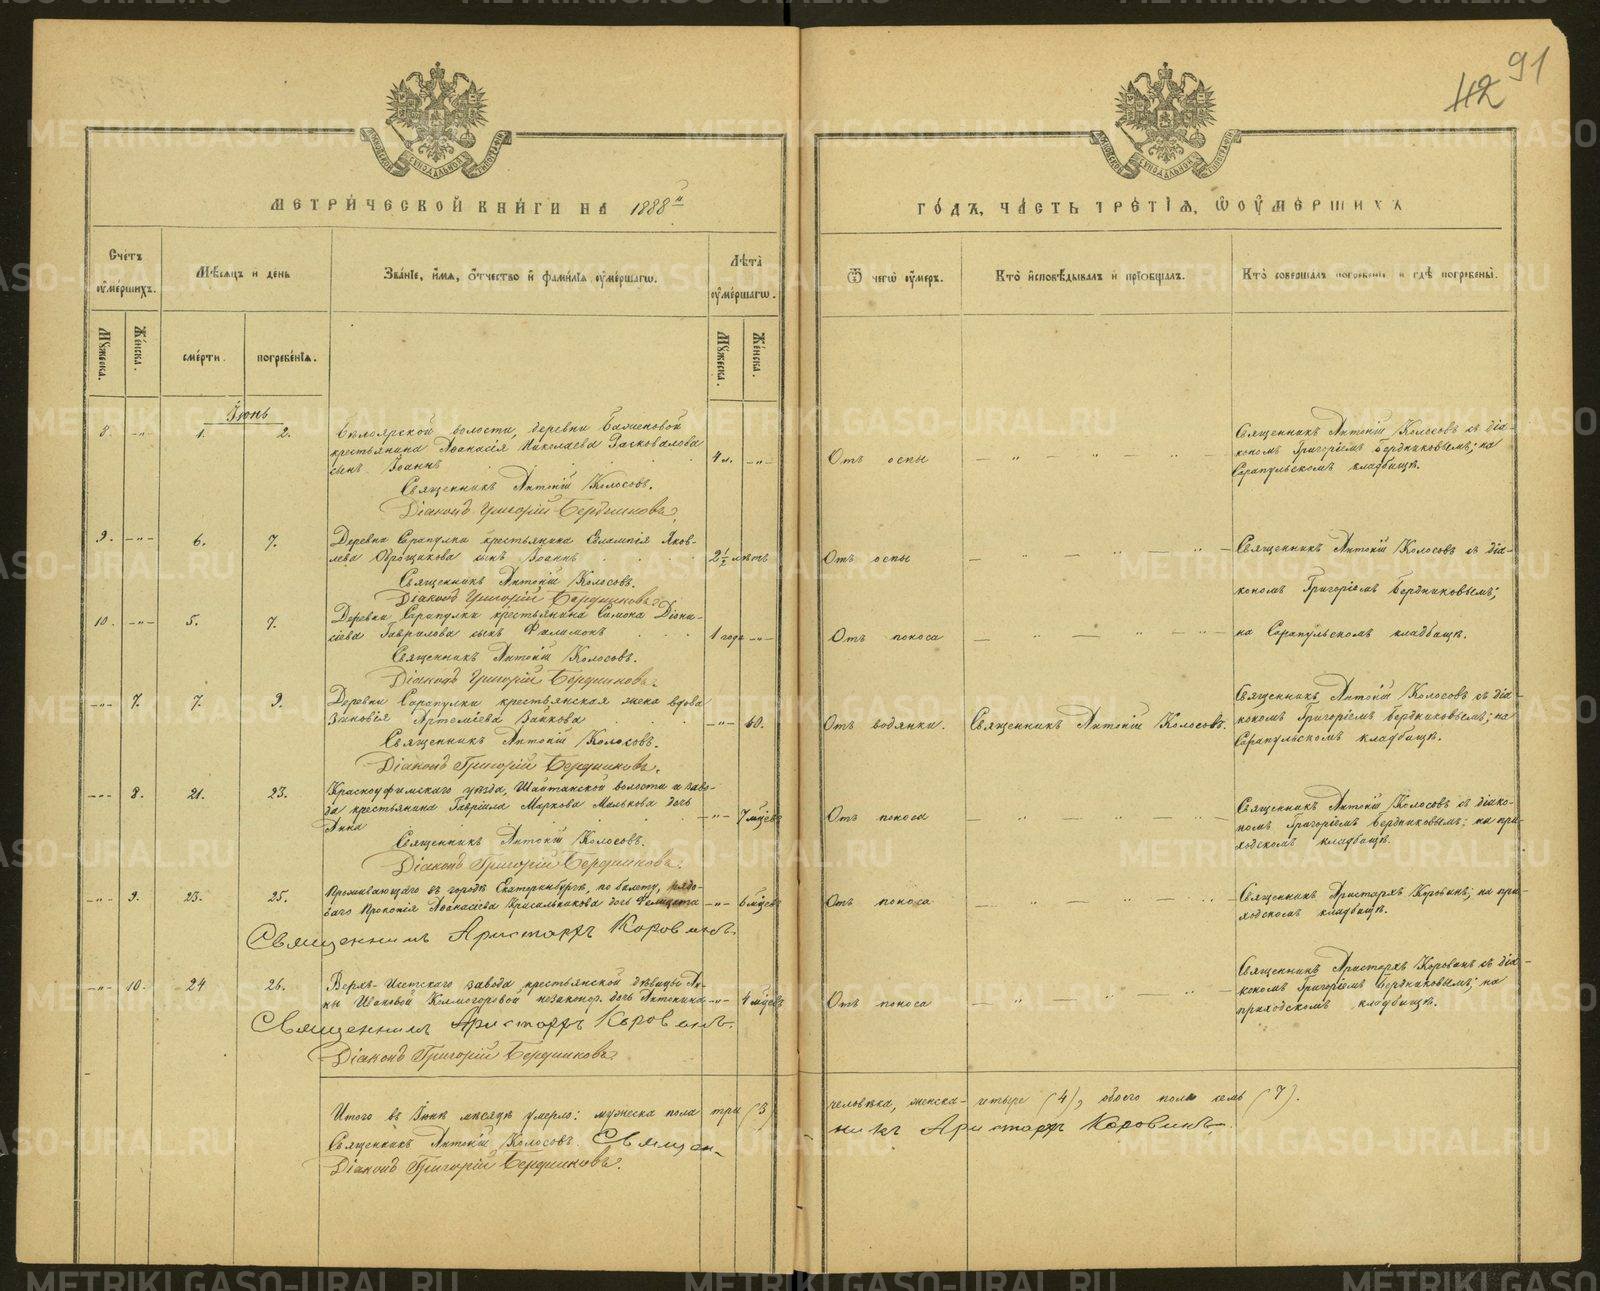 91
112
МЕТРИЧЕСКОЙ КНИГИ НА 1888й
ГОДЪ, ЧАСТЬ ТРЕТІЯ, Ѿ ОУМЕРШИХЪ
Счетъ оумершихъ.
Мѣсяцъ и день
Званіе, имя, отчество и фамилія оумершагѡ.
Лѣта оумершагѡ.
Ѿ чегѡ оумеръ.
Кто исповѣдывалъ и пріобщалъ.
Кто совершалъ погребеніе и гдѣ погребены.
Мужеска.
Женска.
смерти.
погребенія.
Мужеска.
Женска.
Іюнь
8. -„- 1. 2.
Бѣлоярской волости, деревни Баженовой
крестьянина Аѳанасія Николаева Расковалова
сынъ Іоаннъ
4 л. -„-
Отъ оспы
Священникъ Антоній Колосовъ съ діа-
кономъ Григоріемъ Бердниковымъ; на
Сарапульскомъ кладбищѣ.
Священникъ Антоній Колосовъ.
Діаконъ Григорій Бердниковъ.
9. -„- 6. 7.
Деревни Сарапулки крестьянина Евлампія Яков-
лева Прощикова сынъ Іоаннъ
2½ лѣтъ
Отъ оспы
Священникъ Антоній Колосовъ съ діа-
кономъ Григоріемъ Бердниковымъ;
Священникъ Антоній Колосовъ.
Діаконъ Григорій Бердниковъ.
10. -„- 5. 7.
Деревни Сарапулки крестьянина Симона Діони-
сіева Гаврилова сынъ Филимонъ
1 года -„-
Отъ поноса
на Сарапульскомъ кладбищѣ.
Священникъ Антоній Колосовъ.
Діаконъ Григорій Бердниковъ.
-„- 7. 7. 9.
Деревни Сарапулки крестьянская жена вдова
Зиновія Артеміева Заикова
-„- 60.
Отъ водянки.
Священникъ Антоній Колосовъ.
Священникъ Антоній Колосовъ съ діа-
кономъ Григоріемъ Бердниковымъ; на
Сарапульскомъ кладбищѣ.
Священникъ Антоній Колосовъ.
Діаконъ Григорій Бердниковъ.
-„- 8. 21. 23.
Красноуфимскаго уѣзда, Шайтанской волости и заво-
да крестьянина Гавріила Маркова Малькова дочь
Анна
-„- 7 мцевъ
Отъ поноса
Священникъ Антоній Колосовъ съ діако-
номъ Григоріемъ Бердниковымъ; на при-
ходскомъ кладбищѣ.
Священникъ Антоній Колосовъ.
Діаконъ Григорій Бердниковъ.
-„- 9. 23. 25.
Проживающаго въ городѣ Екатеринбургѣ, по билету, рядо-
ваго Прокопія Аѳанасіева Красильникова дочь Фелицата
-„- 6 мцевъ
Отъ поноса
Священникъ Аристархъ Коровинъ; на при-
ходскомъ кладбищѣ.
Священникъ Аристархъ Коровинъ.
-„- 10. 24 26.
Верхъ-Исетскаго завода крестьянской дѣвицы Ан-
ны Ивановой Колмогоровой незаконор. дочь Антонина
-„- 4 мцевъ
Отъ поноса
Священникъ Аристархъ Коровинъ съ діа-
кономъ Григоріемъ Бердниковымъ; на
приходскомъ кладбищѣ.
Священникъ Аристархъ Коровинъ.
Діаконъ Григорій Бердниковъ.
Итого въ Іюнѣ мѣсяцѣ умерло: мужеска пола три (3) человѣка, женска - четыре (4), обоего пола семь (7).
Священникъ Антоній Колосовъ. Священ-
никъ Аристархъ Коровинъ.
Діаконъ Григорій Бердниковъ.
METRIKI.GASO-URAL.RU